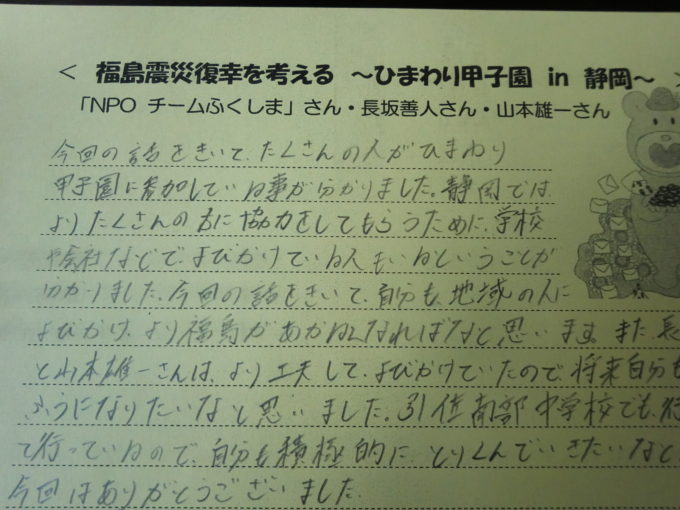 ＜ 福島震災復幸を考える ～ひまわり甲子園 in 静岡～ ＞
「NPO チームふくしま」さん・長坂善人さん・山本雄一さん
今回の話をきいて、たくさんの人がひまわり
甲子園に参加している事が分かりました。静岡では
よりたくさんの方に協力をしてもらうために、学校
や会社などでよびかけている人もいるということが
分かりました。今回の話をきいて、自分も、地域の人に
よびかけ、より福島があかるくなればなと思います。また、長
と山本雄一さんは、より工夫して、よびかけていたので、将来自分も
ふうになりたいなと思いました。引佐南部中学校でも、行
て行っているので、自分も積極的に、とりくんでいきたいなと
今回はありがとうございました。